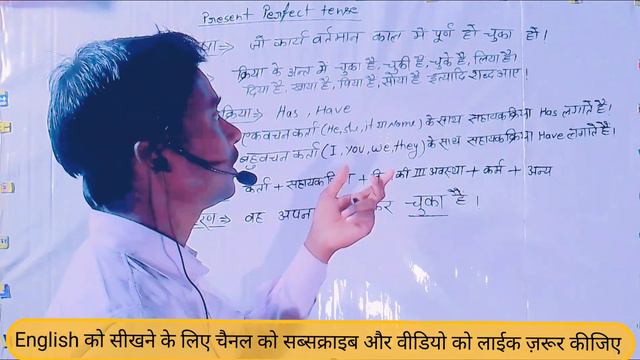 Present Perfect tense
⇒ जो कार्य वर्तमान काल में पूर्ण हो चुका हो।
क्रिया के अन्त में चुका है, चुकी है, चुके है, लिया है।
दिया है, खाया है, पिया है, सोया है इत्यादि शब्द आए।
क्रिया⇒ Has, Have
एकवचन कर्ता (He, she, it या Name) के साथ सहायक क्रिया Has लगाते है।
बहुवचन कर्ता (I, you, we, they) के साथ सहायक क्रिया Have लगाते है।
कर्ता + सहायक + की III अवस्था + कर्म + अन्य
⇒ वह अपना कर चुका है।
English को सीखने के लिए चैनल को सब्सक्राइब और वीडियो को लाईक ज़रूर कीजिए